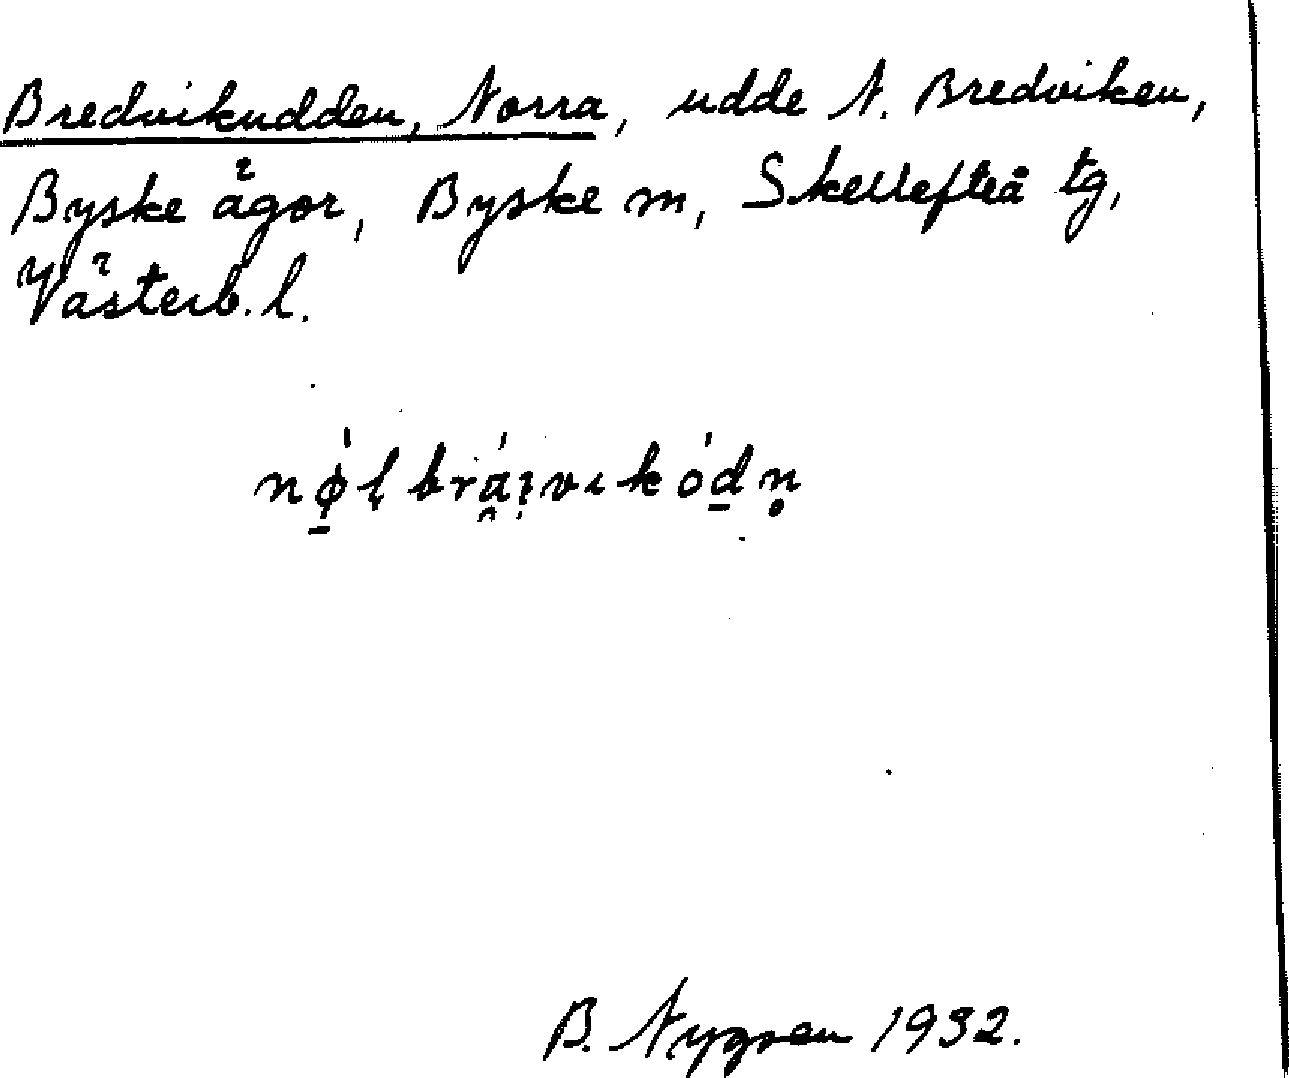 Bredvikudden, Norra, udde N. Bredviken,
Byske ägor, Byske sn, Skellefteå tg,
Västerb. l.
nǿ̱l brái̯vɩkód̲n̥
B. Nygren 1932.